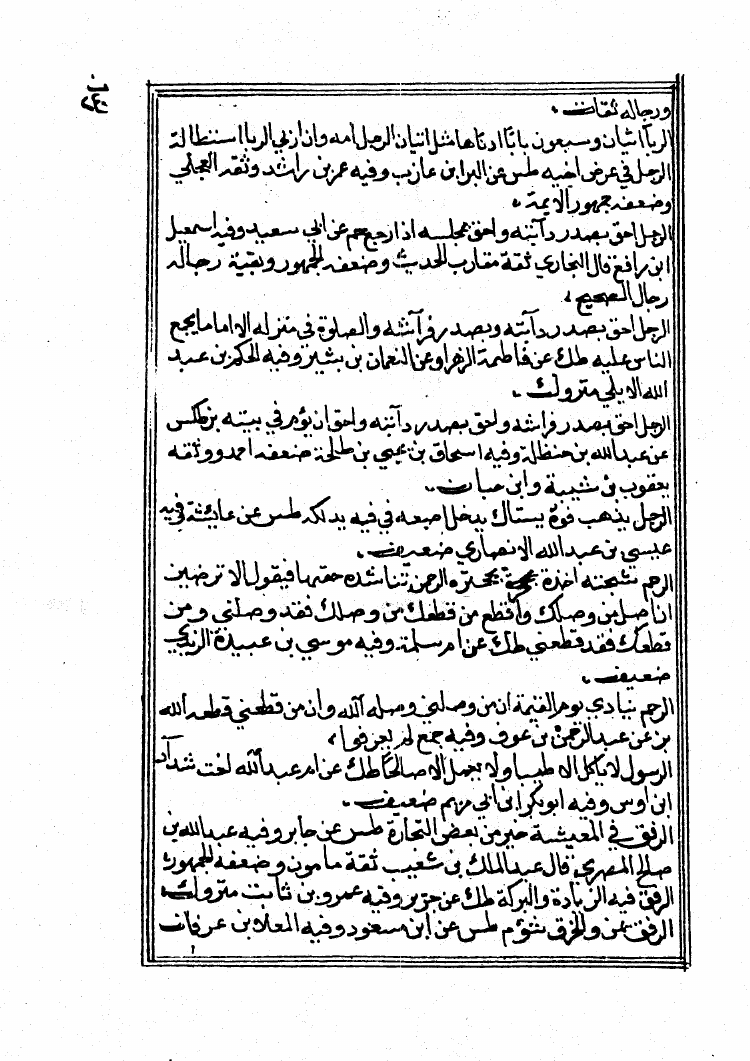 ورجاله ثقات .
الربا اثنان وسبعون بابا ادناها مثل اتيان الرجل امه وان اربي الربا استطالة
الرجل في عرض اخيه طس عن البرا بن عازب وفيه عمر بن راشد وثقه العجلي
وضعفه جمهور الايمة .
الرجل احق بصدر دآبته واحق بمجلسه اذا رجع حم عن ابي سعيد وفيه اسمعيل
ابن رافع قال البخاري ثقة مقارب الحديث وضعفه الجمهور وبقية رجاله
رجال الصحيح ،
الرجل احق بصدر دآبته وبصدر فرآشه والصلوة في منزله الا اماما يجمع
الناس عليه طك عن فاطمة الزهرا وعن النعمان بن بشير وفيه الحكم بن عبد
الله الايلي متروك .
الرجل احق بصدر فراشه واحق بصدر دآبته واحق ان يؤم في بيته بز طكس
عن عبد الله بن حنظلة وفيه اسحاق بن يحيي بن طلحة ضعفه احمد ووثقه
يعقوب بن شيبة وابن حبان ..
الرجل يذهب فوه يستاك يدخل اصبعه في فيه يدلكه طس عن عايشة وفيه
عيسي بن عبد الله الانصاري ضعيف .
الرحم شجنة اخذة بحجزة الرحمن تناشده حقها فيقول الا ترضين
ان اصل من وصلك واقطع من قطعك من وصلك فقد وصلني ومن
قطعك فقد قطعني طك عن ام سلمة وفيه موسي بن عبيدة الربذي
ضعيف .
الرحم ينادي يوم القيمة ان من وصلني وصله الله وان من قطعني قطعه الله
بز عن عبد الرحمن بن عوف وفيه جمع لم يعرفوا ،
الرسول لا ياكل الا طيبا ولا يعمل الا صالحا طك عن ام عبد الله اخت شداد
ابن اوس وفيه ابو بكر ابن ابي مريم ضعيف .
الرفق في المعيشة خير من بعض التجارة طس عن جابر وفيه عبد الله بن
صلح المصري قال عبد الملك بن شعيب ثقة مامون وضعفه الجمهور
الرفق فيه الزيادة والبركة طك عن جرير وفيه عمرو بن ثابت متروك
الرفق يمن والخرق شؤم طس عن ابن مسعود وفيه المعلا بن عرفان